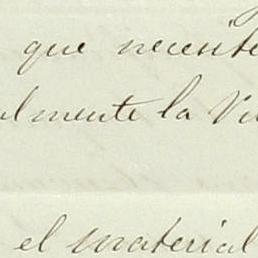 que necesite
almente la Vi
el material